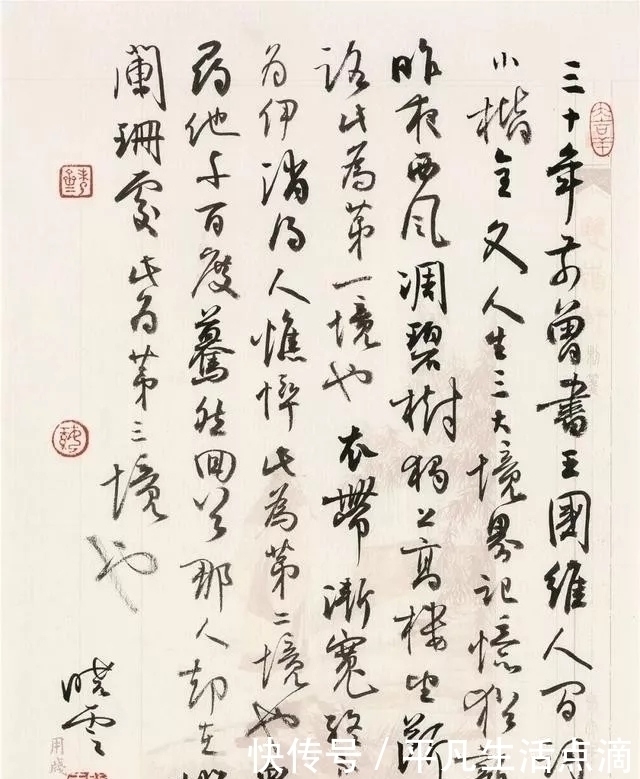 三十年前曾書王國維人間
小楷全文人生三大境界記憶猶
昨夜西風凋碧樹獨上高樓望斷
路此為第一境也 衣帶漸寬終
为伊消得人憔悴此為第二境也
尋他千百度驀然回首那人却在
闌珊處此为第三境也
曉雲
快传号/平凡生活点滴